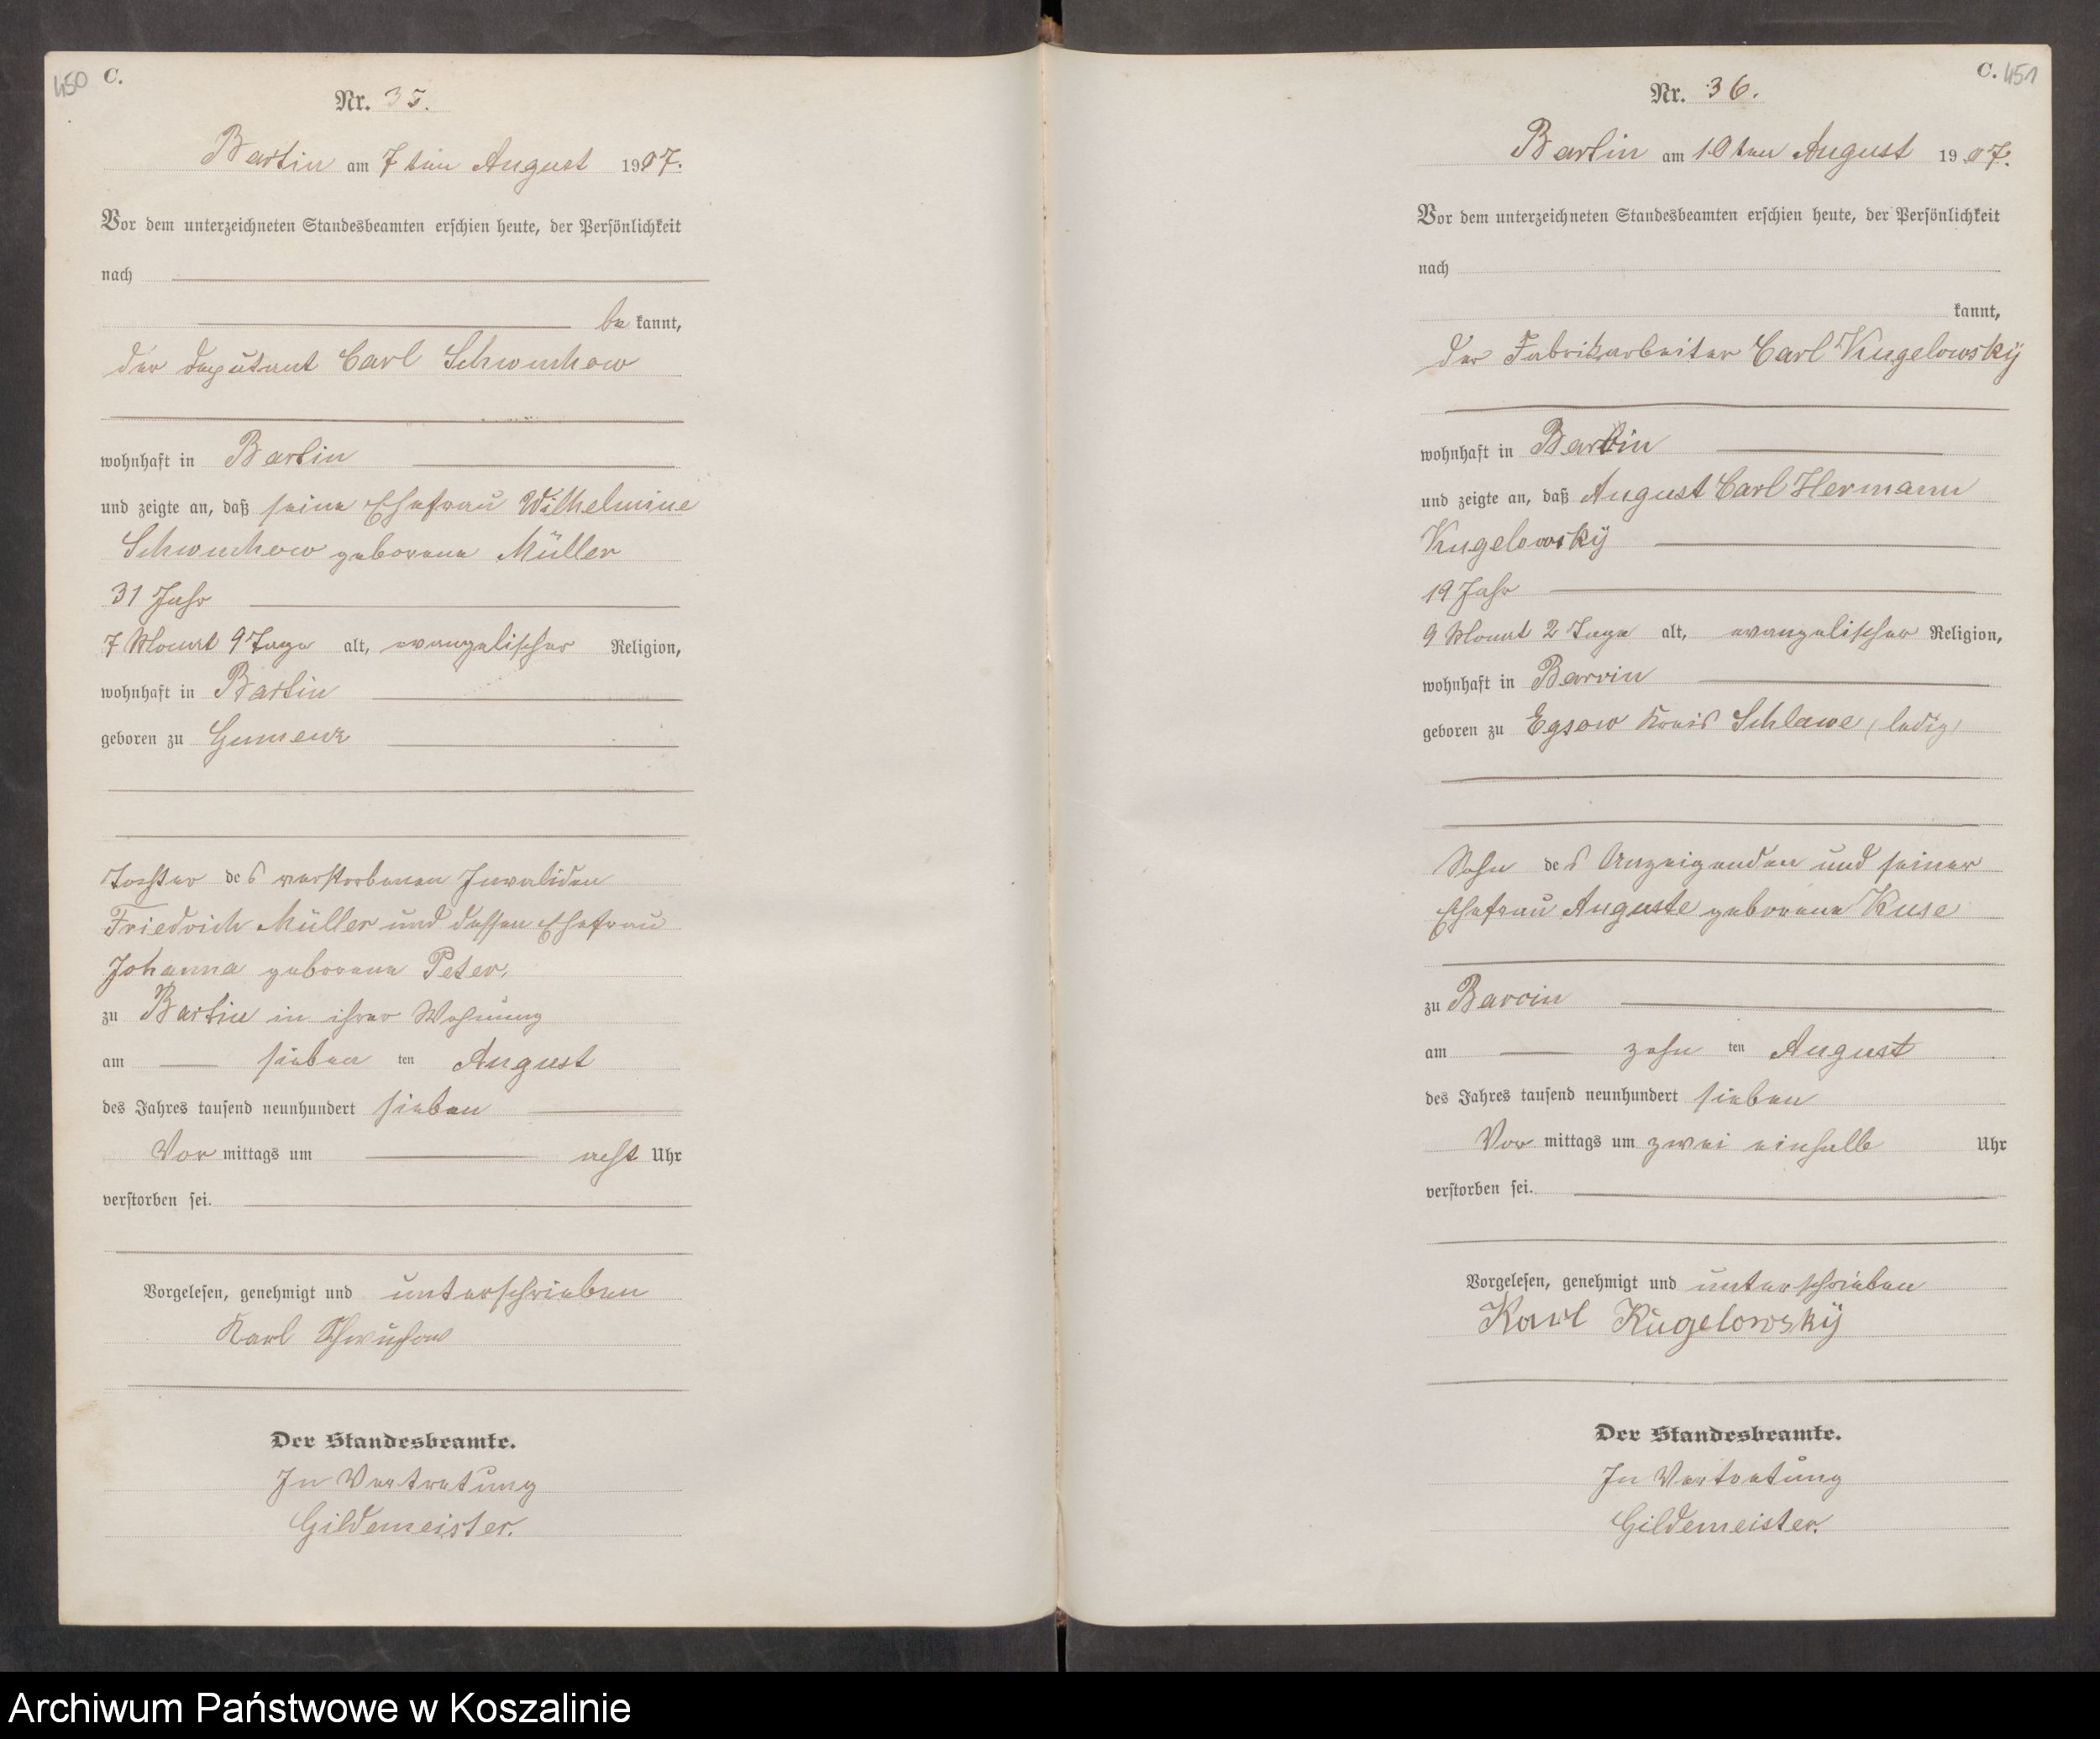 450 C.
Nr. 35.
Bartin am 7ten August 1907.
Vor dem unterzeichneten Standesbeamten erschien heute, der Persönlichkeit
nach
be kannt,
der Deputant Carl Schwuchow
wohnhaft in Bartin
und zeigte an, daß seine Ehefrau Wilhelmine
Schwuchow geborene Müller
31 Jahr
7 Monat 9 Tage alt, evangelischer Religion,
wohnhaft in Bartin
geboren zu Gumenz
Tochter des verstorbenen Invaliden
Friedrich Müller und dessen Ehefrau
Johanna geborene Peter,
zu Bartin in ihrer Wohnung
am sieben ten August
des Jahres tausend neunhundert sieben
Vor mittags um acht Uhr
verstorben sei.
Vorgelesen, genehmigt und unterschrieben
Karl Schwuchow
Der Standesbeamte.
In Vertretung
Gildemeister.
C. 451
Nr. 36.
Bartin am 10ten August 1907.
Vor dem unterzeichneten Standesbeamten erschien heute, der Persönlichkeit
nach
kannt,
der Fabrikarbeiter Carl Kugelowsky
wohnhaft in
und zeigte an, daß August Carl Hermann
Kugelowsky
19 Jahr
9 Monat 2 Tage alt, evangelischer Religion,
wohnhaft in Barvin
geboren zu Egsow Kreis Schlawe (ledig)
Sohn des Anzeigenden und seiner
Ehefrau Auguste geborene Kuse
zu Barvin
am zehn ten August
des Jahres tausend neunhundert sieben
Vor mittags um zwei einhalb Uhr
verstorben sei.
Vorgelesen, genehmigt und unterschrieben
Karl Kugelowsky
Der Standesbeamte.
In Vertretung
Gildemeister.
Archiwum Państwowe w Koszalinie